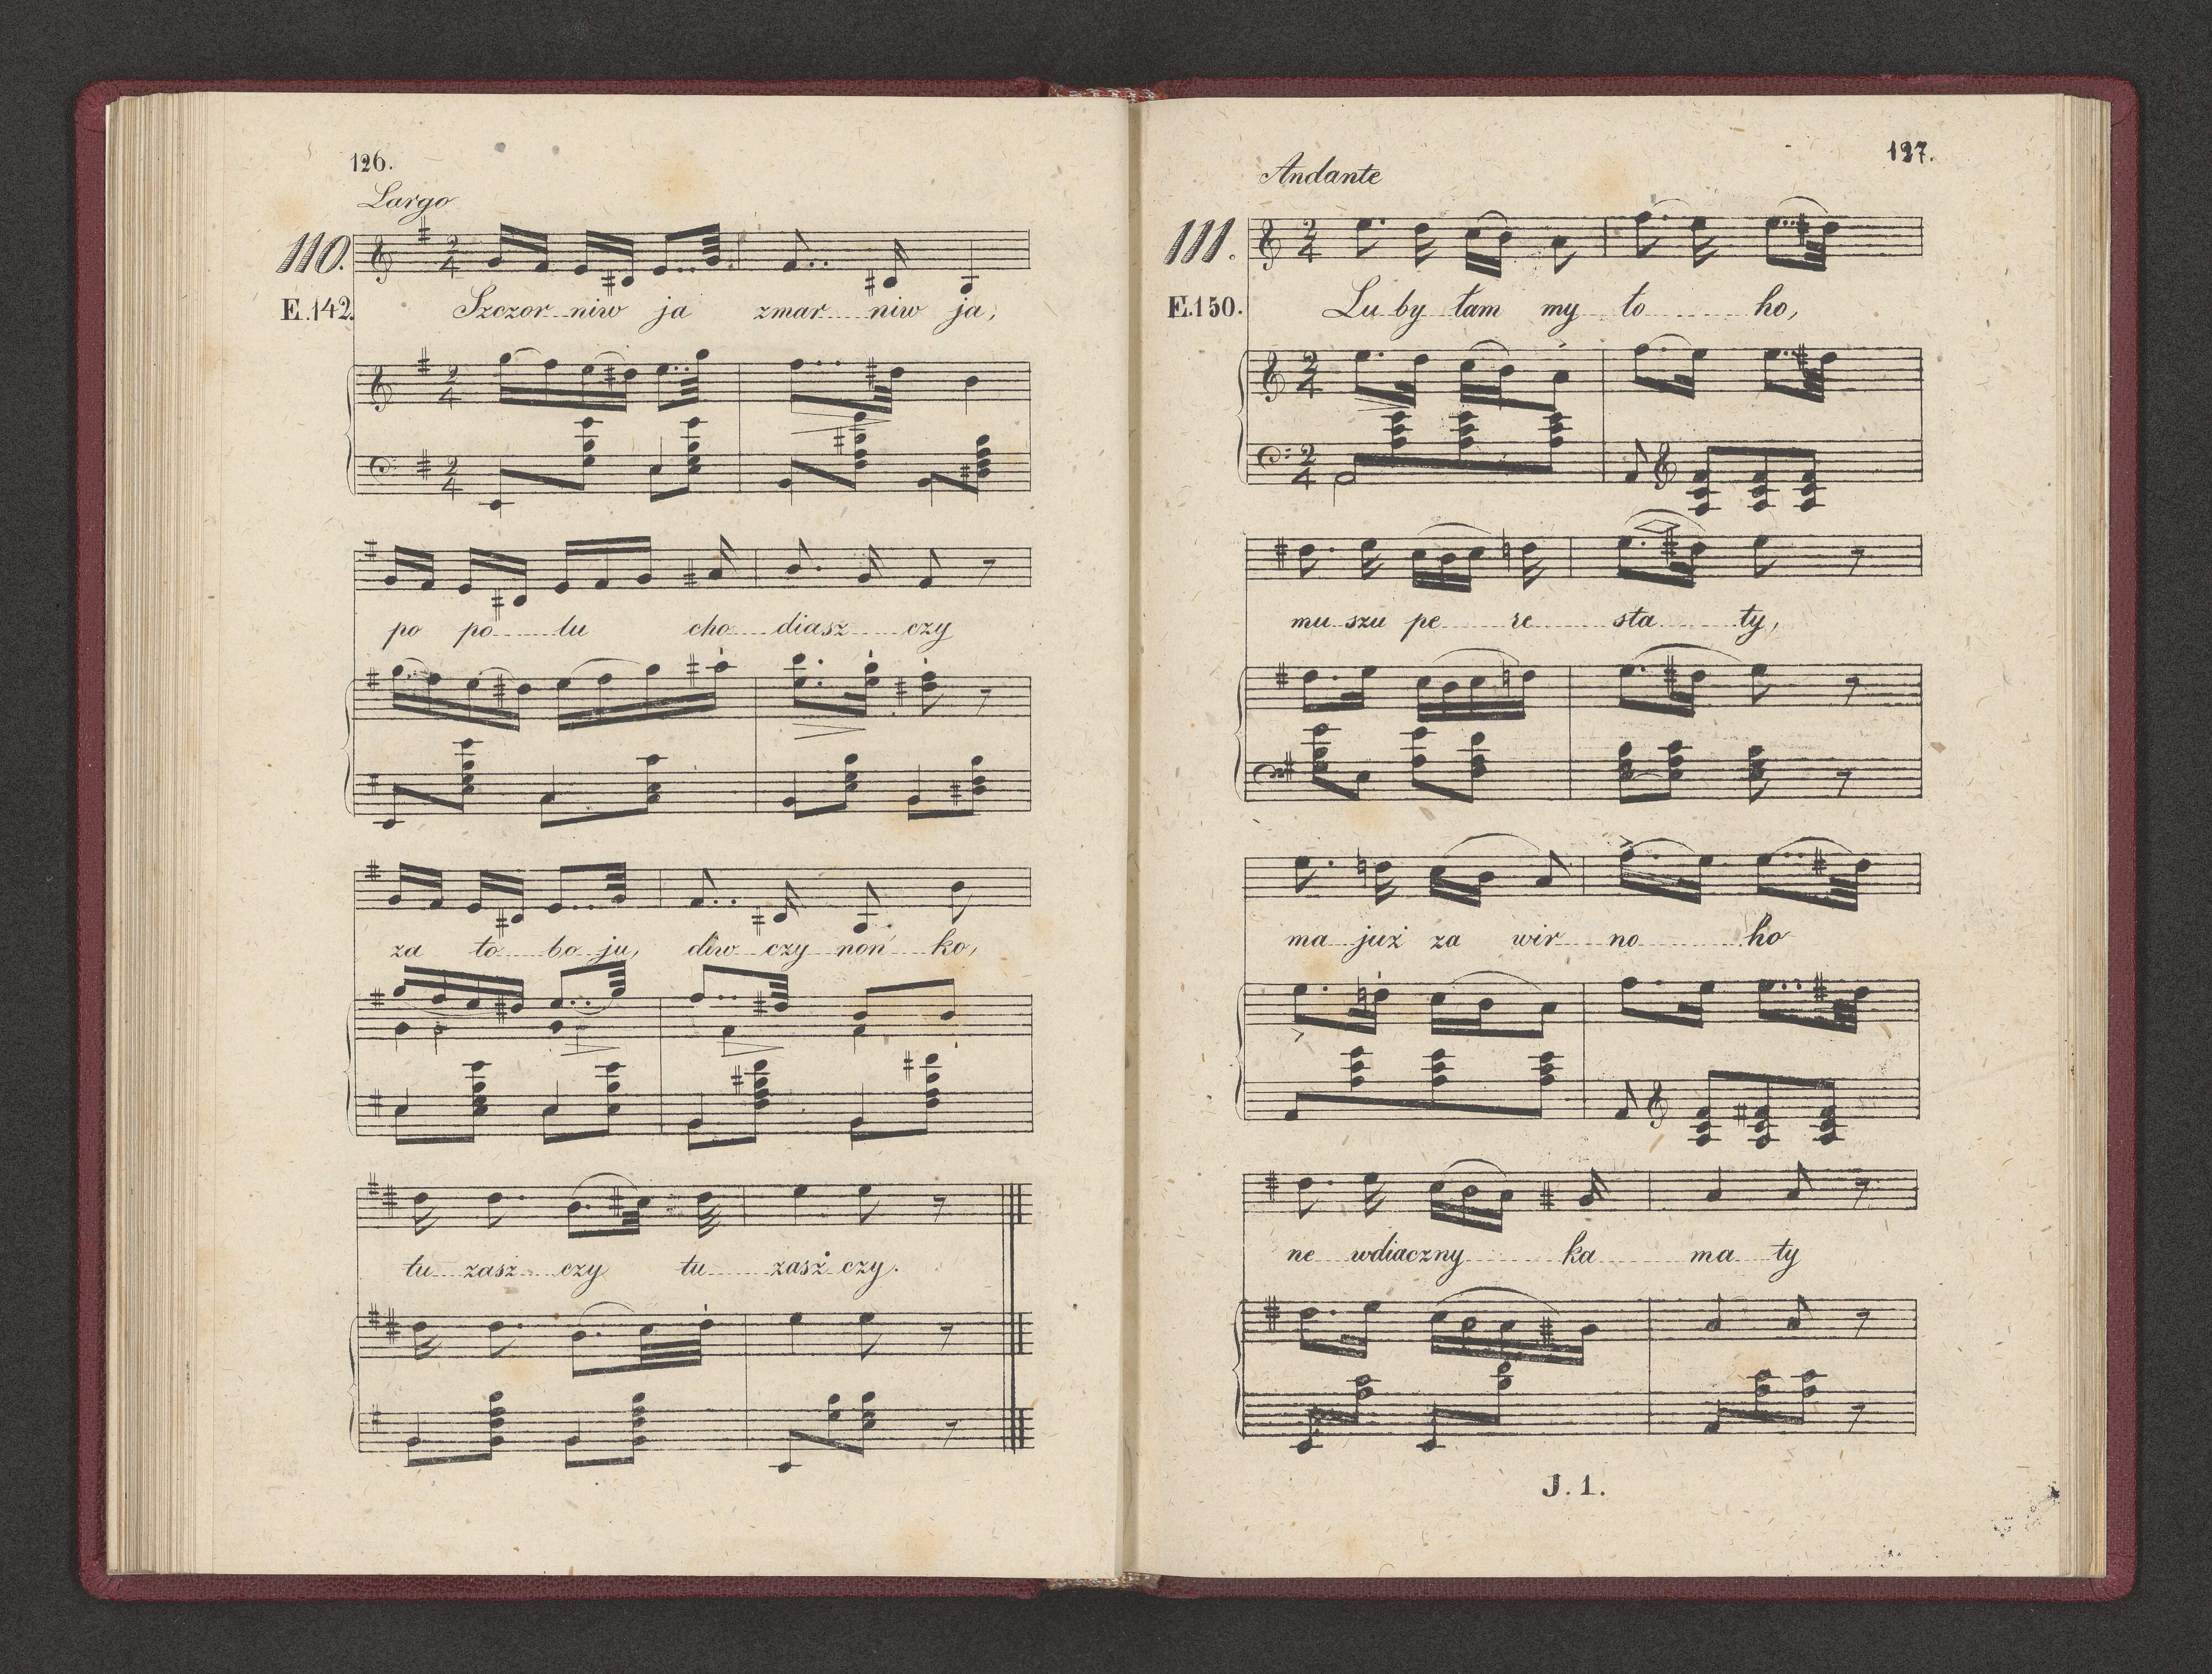 126.
Largo
110.
E.142.
Szczor niw ja zmar niw ja,
po po lu cho diasz czy
za to bo ju, diw czy noń ko,
tu zasz czy tu zasż czy.
127.
Andante
111.
E.150.
Lu by łam my to ho,
mu szu pe re sta ty,
ma już za wir no ho
ne wdiaczny ka ma ty
J. 1.